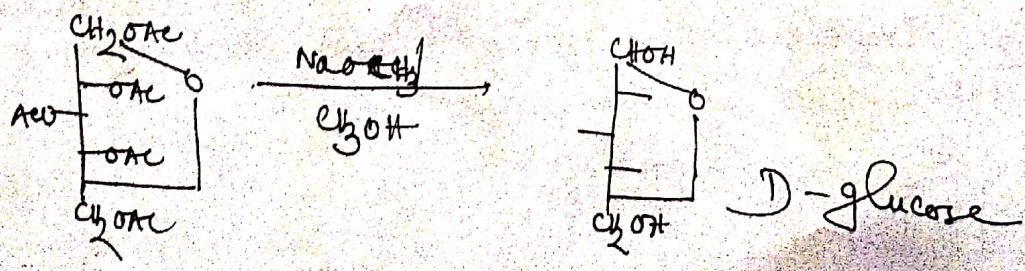 CH2OAc
O
OAc
AcO
OAc
CH2OAc
NaOCH3
CH3OH
CHOH
O
CH2OH
D-glucose